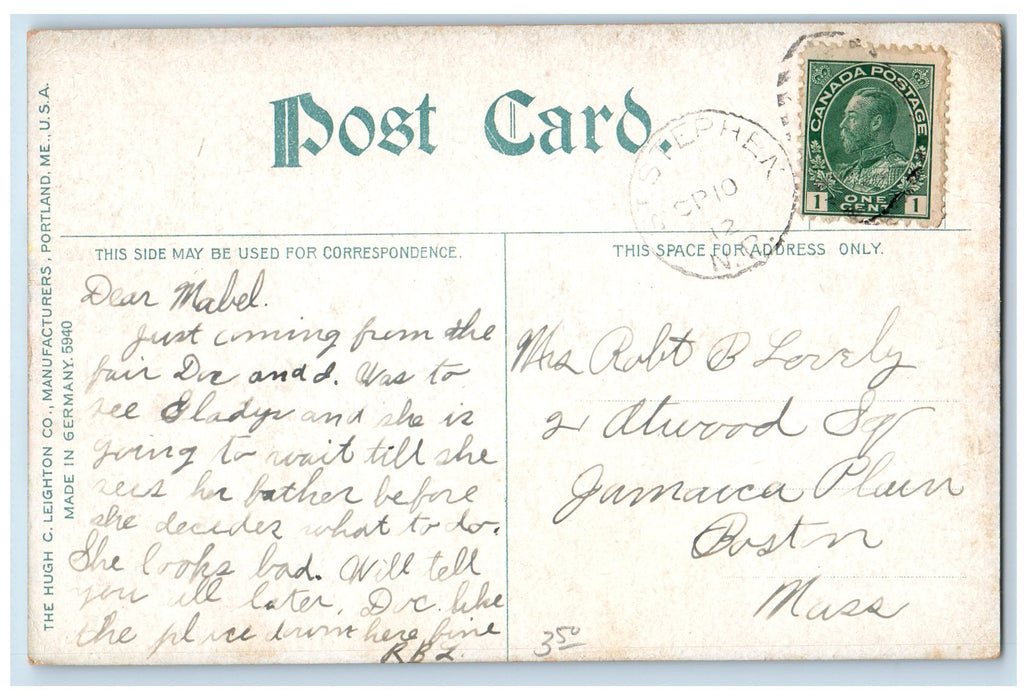 Post Card.
CANADA POSTAGE
1 ONE CENT 1
ST STEPHEN
SP 10
12
N.B.
THIS SIDE MAY BE USED FOR CORRESPONDENCE.
THIS SPACE FOR ADDRESS ONLY.
Dear Mabel.
Just coming from the
fair Doc and I. Was to
see Gladys and she is
going to wait till she
sees her father before
she decides what to do.
She looks bad. Will tell
you all later. Doc. like
the place down here fine
R B L.
Mrs Robt B Lovely
2 Atwood Sq
Jamaica Plain
Boston
Mass
3 50
THE HUGH C. LEIGHTON CO., MANUFACTURERS, PORTLAND, ME., U.S.A.
MADE IN GERMANY. 5940